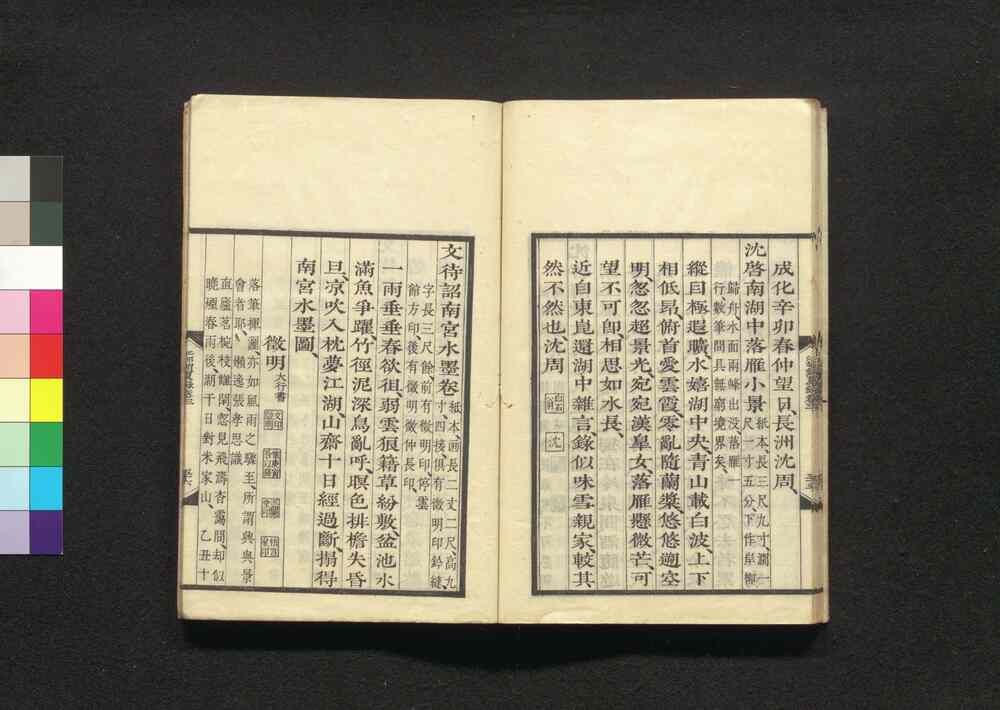 成化辛卯春仲望日、長洲沈周、
沈啓南湖中落雁小景 紙本、長三尺九寸、濶一
尺一寸五分、下作岸柳
歸舟、水面兩峰出沒、落雁一
行、數筆間、具無窮境界矣、
縱目極遐曠、水嬉湖中央、青山載白波、上下
相低昂、俯首愛雲霞、零亂隨蘭槳、悠悠遡空
明、忽忽超景光、宛宛漢皐女、落雁懸微芒、可
望不可卽、相思如水長、
近自東崑還湖中雜言、錄似味雪親家、較其
然不然也、沈周 白石 沈
文待詔南宮水墨卷 紙本、画長二丈二尺、高九
寸、四接、俱有徵明印鈐縫、
字長三尺餘、前有徵明印、停雲
館方印、後有徵明徵仲長印、
一雨垂垂春欲徂、弱雲狼籍草紛敷、盆池水
滿魚爭躍、竹徑泥深鳥亂呼、暝色排檐失昏
旦、凉吹入枕夢江湖、山齋十日經過斷、搨得
南宮水墨圖、
徵明 大行書
落筆揮灑、亦如風雨之驟至、所謂興與景
會者耶、懶逸張孝思識
直廬茗椀棧讎閑、忽見飛濤杳靄間、却似
曉磵春雨後、湖干日對米家山、乙丑十